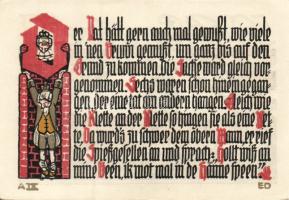 Der Rat hätt gern auch mal gewußt, wie viele
in'nen Brunn gewußt, um ganz bis auf den
Grund zu kommen, die Sache ward gleich vor-
genommen. Sechs waren schon hinunter gegan-
gen, der eine tat am andern hangen. Gleich wie
die Kette an der Kette so hingen sie als eine Ket-
te. Da ward's zu schwer dem obern Mann, er rief
die Spießgesellen an und sprach: "Hollt wiß an
mine Been, ik mot mal in de Hänne speen."
A IX
EO